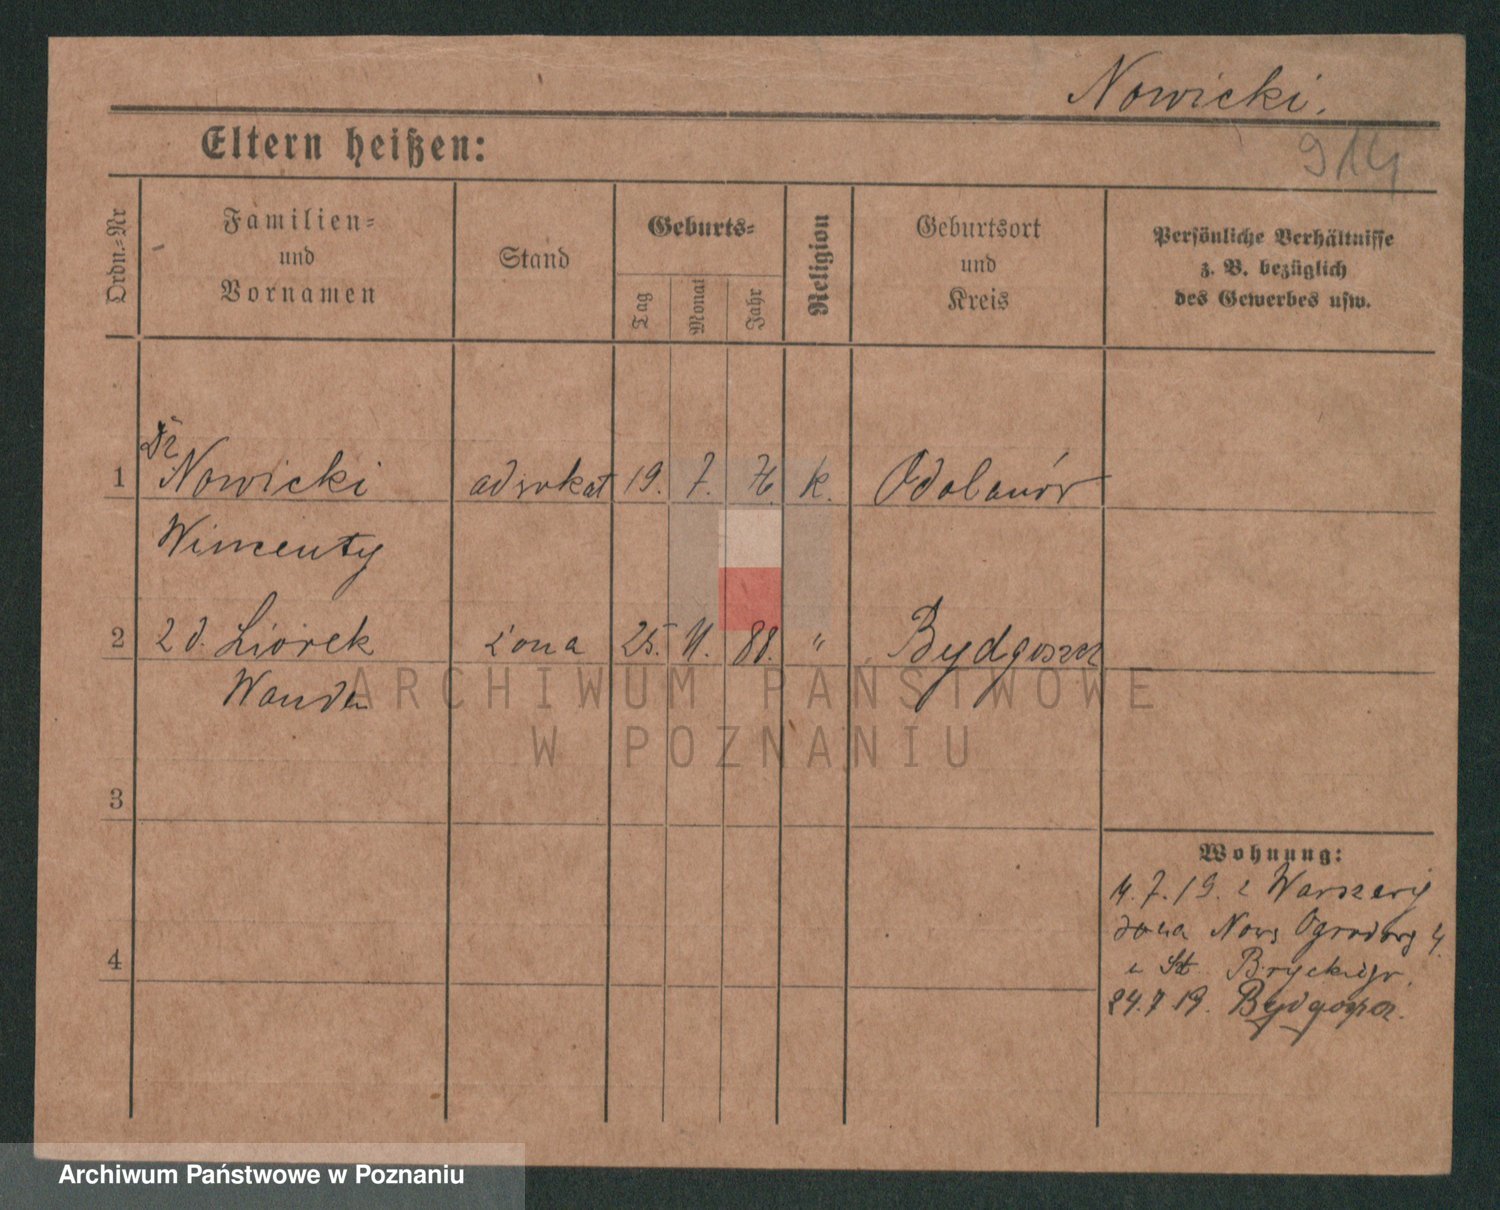 Nowicki.
914
Eltern heißen:
Ordn.=Nr
Familien=
und
Vornamen
Stand
Geburts=
Tag
Monat
Jahr
Religion
Geburtsort
und
Kreis
Persönliche Verhältnisse
z. B. bezüglich
des Gewerbes usw.
Dr
1 Nowicki adwokat 19. 7. k. Odolanów
Wincenty
2 z d. żona 25. 11. 88. " Bydgoszcz
Wanda
3
4
Wohnung:
4. 7. 19. z Warszawy
Nowo Ogrodowa 4
24.7 19. Bydgoszcz.
ARCHIWUM PAŃSTWOWE
W POZNANIU
Archiwum Państwowe w Poznaniu